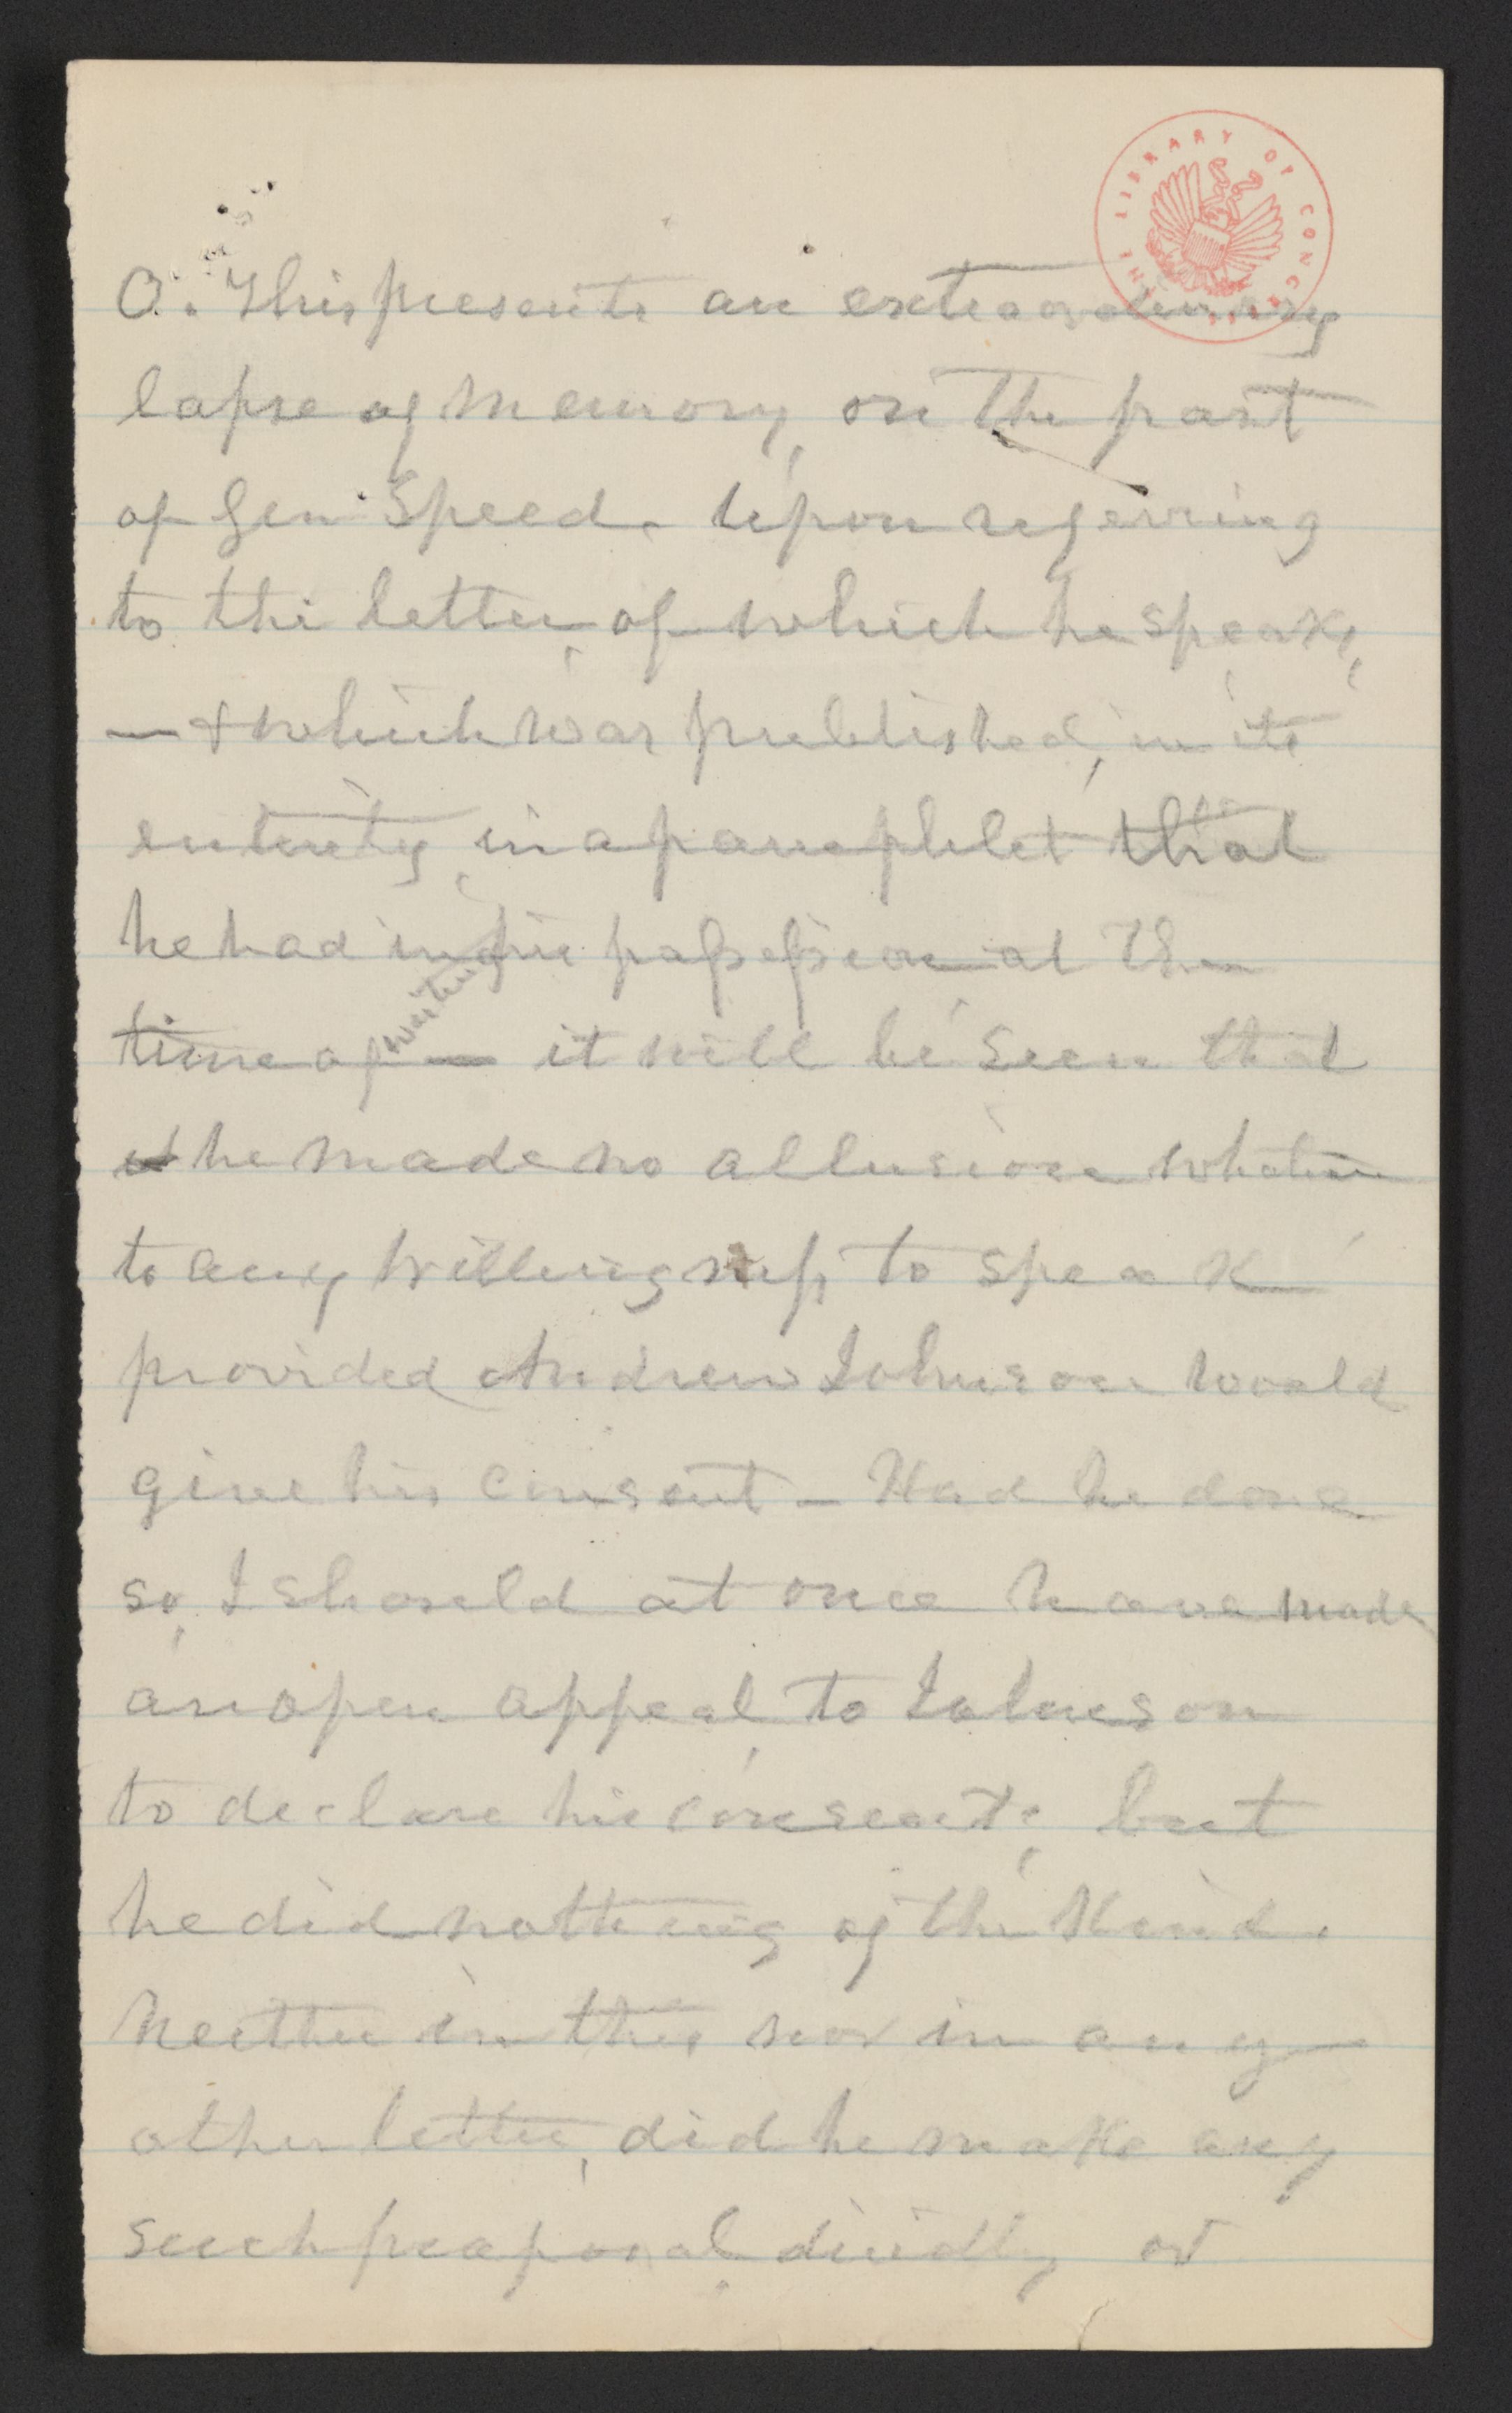 THE LIBRARY OF CONGRESS
O. This presents an extraordinary
lapse of memory, on the part
of Gen Speed. Upon referring
to the letter, of which he speaks,
— & which was published, in its
entirety, in a pamphlet that
he had in his possession at the
time of writing — it will be seen that
it he made no allusion whatever
to any willingness to speak
provided Andrew Johnson would
give his consent — Had he done
so, I should at once have made
an open appeal, to Johnson
to declare his consent; but
he did nothing of the kind.
Neither in this nor in any
other letter, did he make any
such proposal directly or